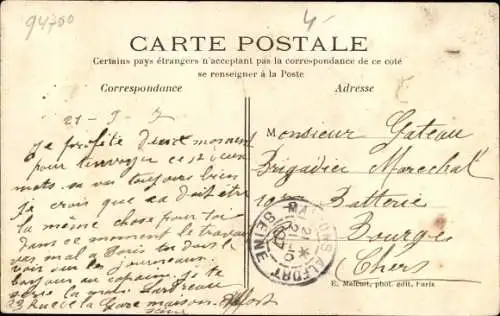 94700
4
CARTE POSTALE
Certains pays étrangers n'acceptant pas la correspondance de ce coté
se renseigner à la Poste
Correspondance
Adresse
21 - 9 - 7
Je profite d'un moment
pour t'envoyer ces deux
mots. sa va toujours bien
je crois que sa doit être
la même chose pour toi
dans ce moment le travail
vas mal a Paris tu dois le
voir sur les journeaux.
bonjour au copain. je te
serre la main
23 Rue de la Gare maison Alfort
Seine
Monsieur Gateau
Brigadier Marechal
Batterie
Bourges
Cher
ALFORT
SEINE
E. Malcuit, phot. édit, Paris